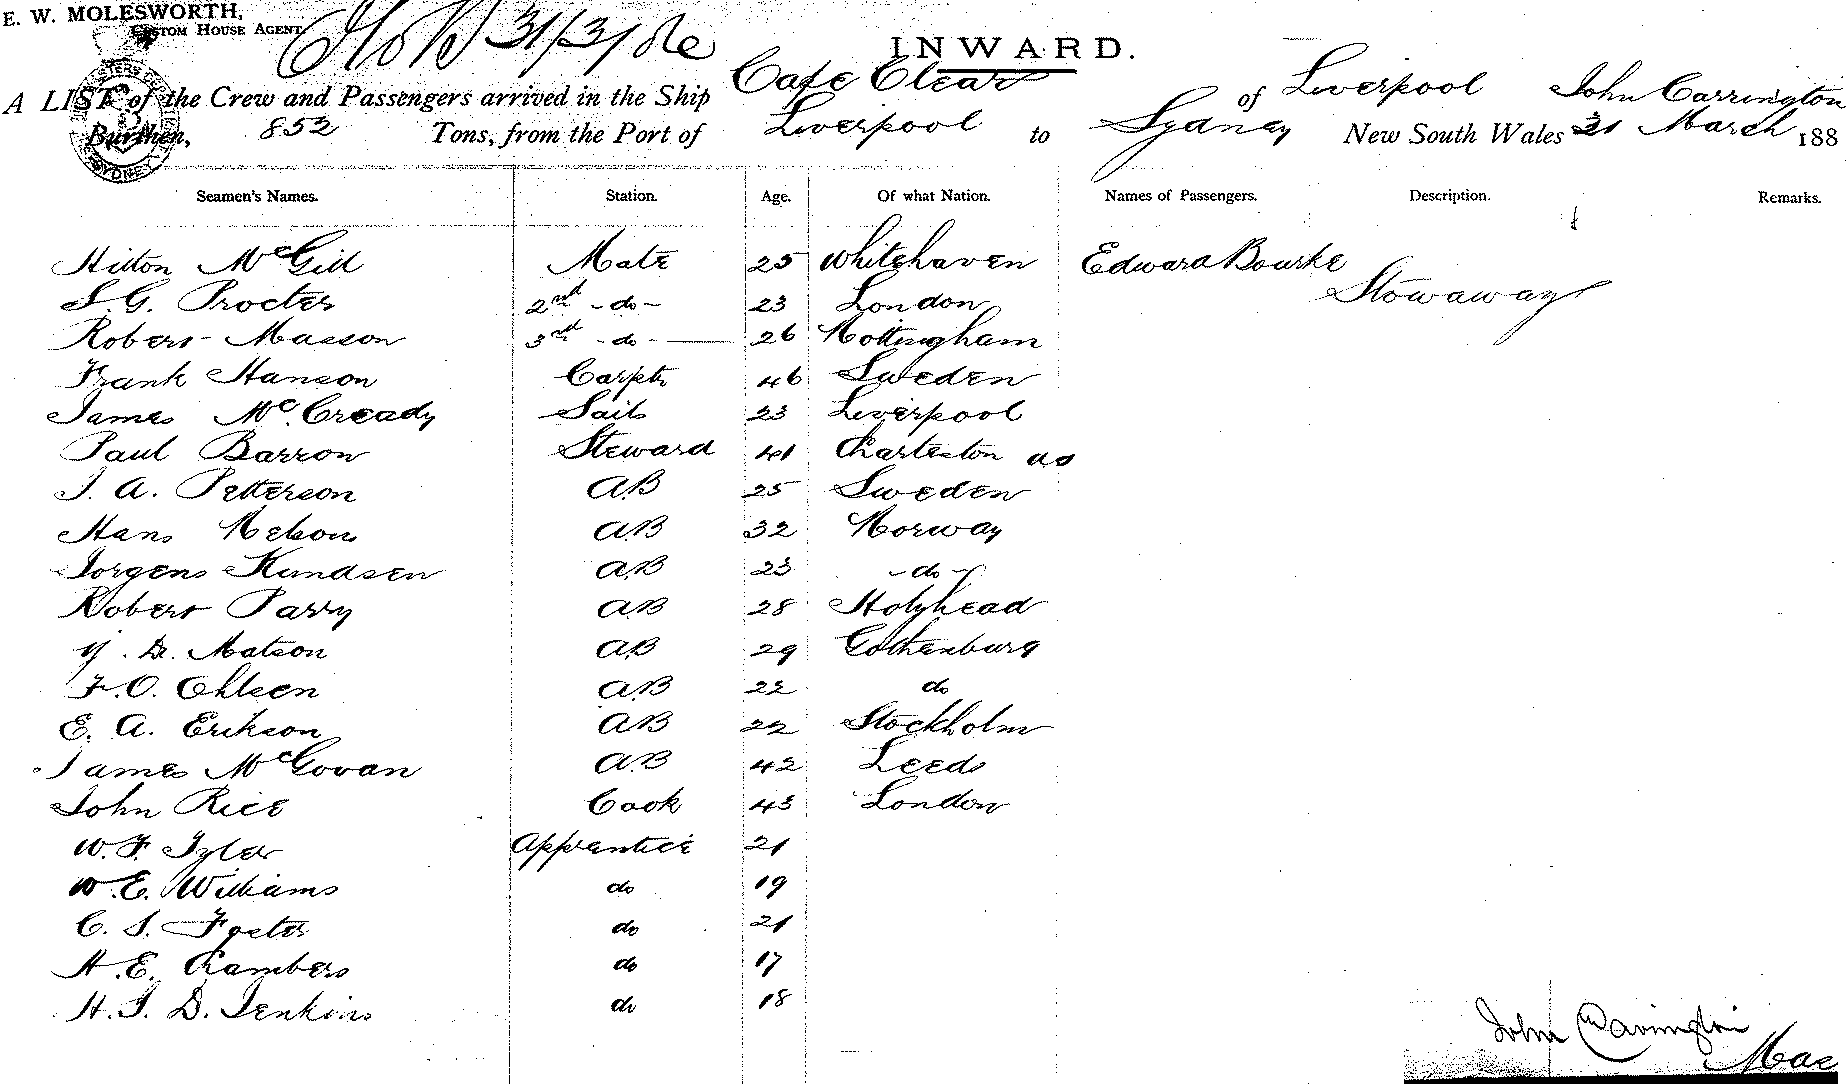 E. W. MOLESWORTH,
CUSTOM HOUSE AGENT.
31/3/86
INWARD.
A LIST of the Crew and Passengers arrived in the Ship Cape Clear of Liverpool John Carrington
Burthen, 852 Tons, from the Port of Liverpool to Sydney New South Wales 31 March 188
Seamen's Names. Station. Age. Of what Nation. Names of Passengers. Description. Remarks.
Hilton McGill Mate 25 Whitehaven Edward Bourke
S. G. Procter 2nd -do- 23 London Stowaway
Robert Masson 3rd -do- 26 Nottingham
Frank Hanson Carptr 46 Sweden
James McCready Sails 23 Liverpool
Paul Barron Steward 41 Charleston us
J. A. Petterson AB 25 Sweden
Hans Nelson AB 32 Norway
Jorgens Kundsen AB 23 -do-
Robert Parry AB 28 Holyhead
D. Matson AB 29 Gothenburg
F. O. Ohlsen AB 22 do
E. A. Erikson AB 22 Stockholm
James McGovan AB 42 Leeds
John Rice Cook 43 London
W. F. Tyler Apprentice 21
W. E. Williams do 19
C. S. Foster do 21
H. E. Chambers do 17
H. J. D. Jenkins do 18
John Carrington